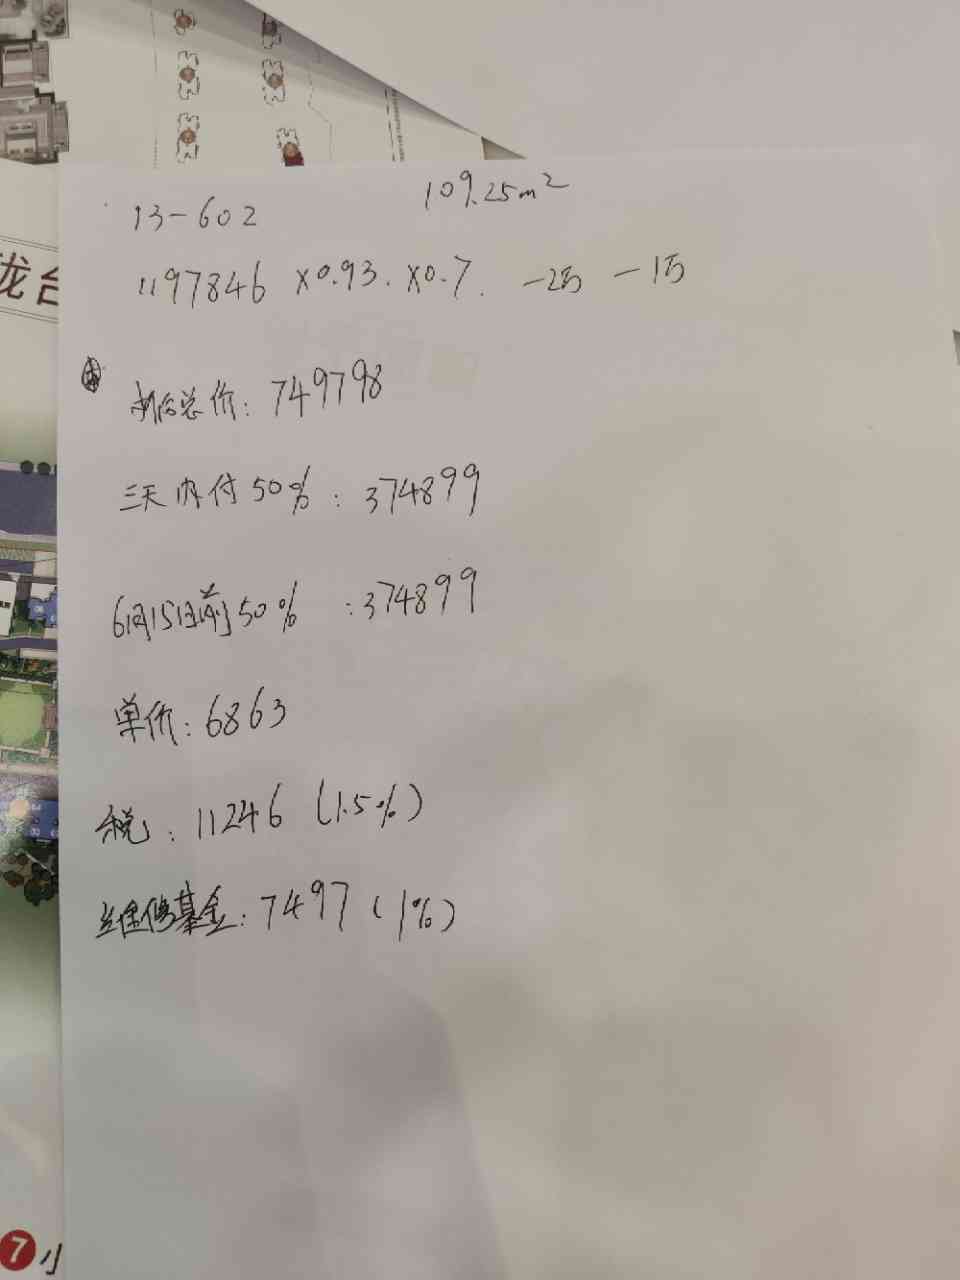 13-602 109.25m²
1197846 ×0.93. ×0.7. -2万 -1万
拢台
折后总价: 749798
三天内付50%: 374899
6月15日前50%: 374899
单价: 6863
税: 11246 (1.5%)
维修基金: 7497 (1%)
7 小